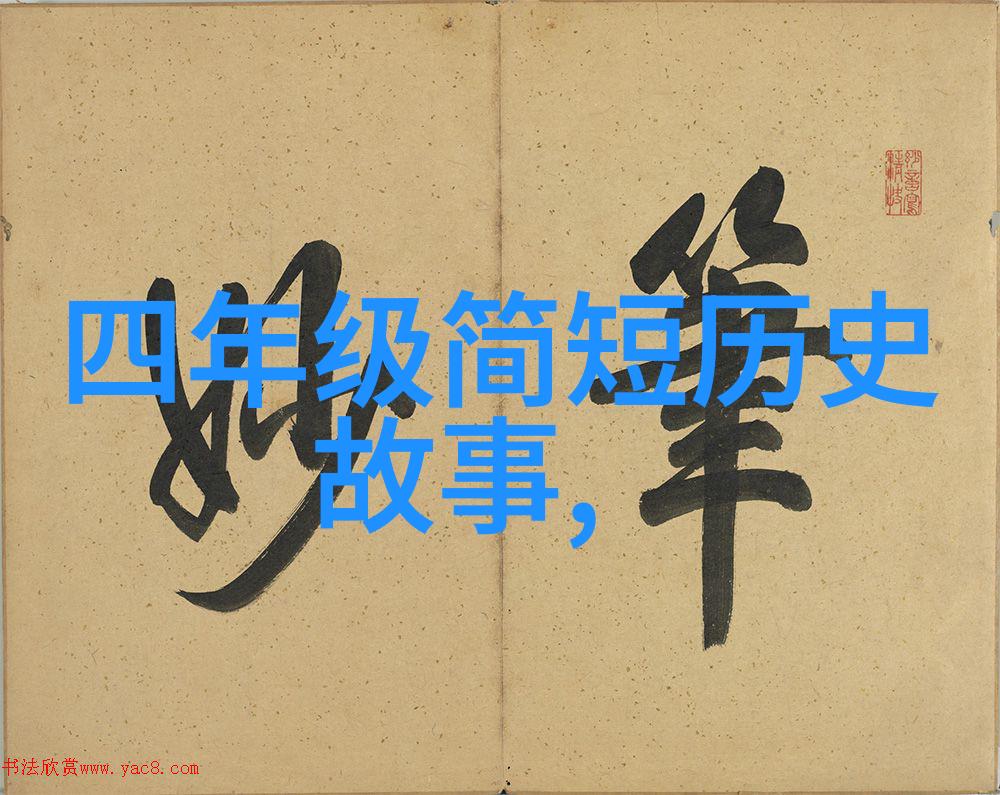 四年级简短历史
故事,
妙筆
书法欣赏www.yac8.com